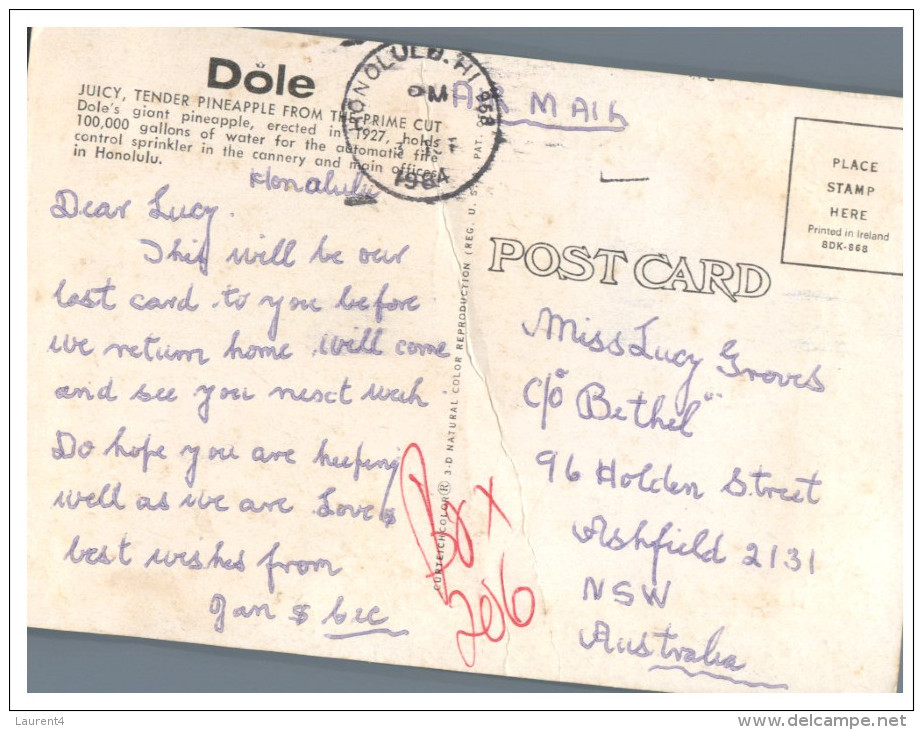 Dole
JUICY, TENDER PINEAPPLE FROM THE PRIME CUT
Dole's giant pineapple, erected in 1927, holds
100,000 gallons of water for the automatic fire
control sprinkler in the cannery and main offices
in Honolulu.
HONOLULU. HI 968
PM
1984
AIR MAIL
PLACE
STAMP
HERE
Printed in Ireland
8DK-868
POST CARD
CURTEICHCOLOR® 3-D NATURAL COLOR REPRODUCTION (REG. U.S. PAT.
Honalulu
Dear Lucy.
This will be our
last card to you before
we return home will come
and see you next week
Do hope you are keeping
well as we are Love &
best wishes from
Jan &
Miss Lucy Groves
C/o "Bethel"
96 Holden Street
Ashfield 2131
NSW
Australia
Box
206
Laurent4
www.delcampe.net